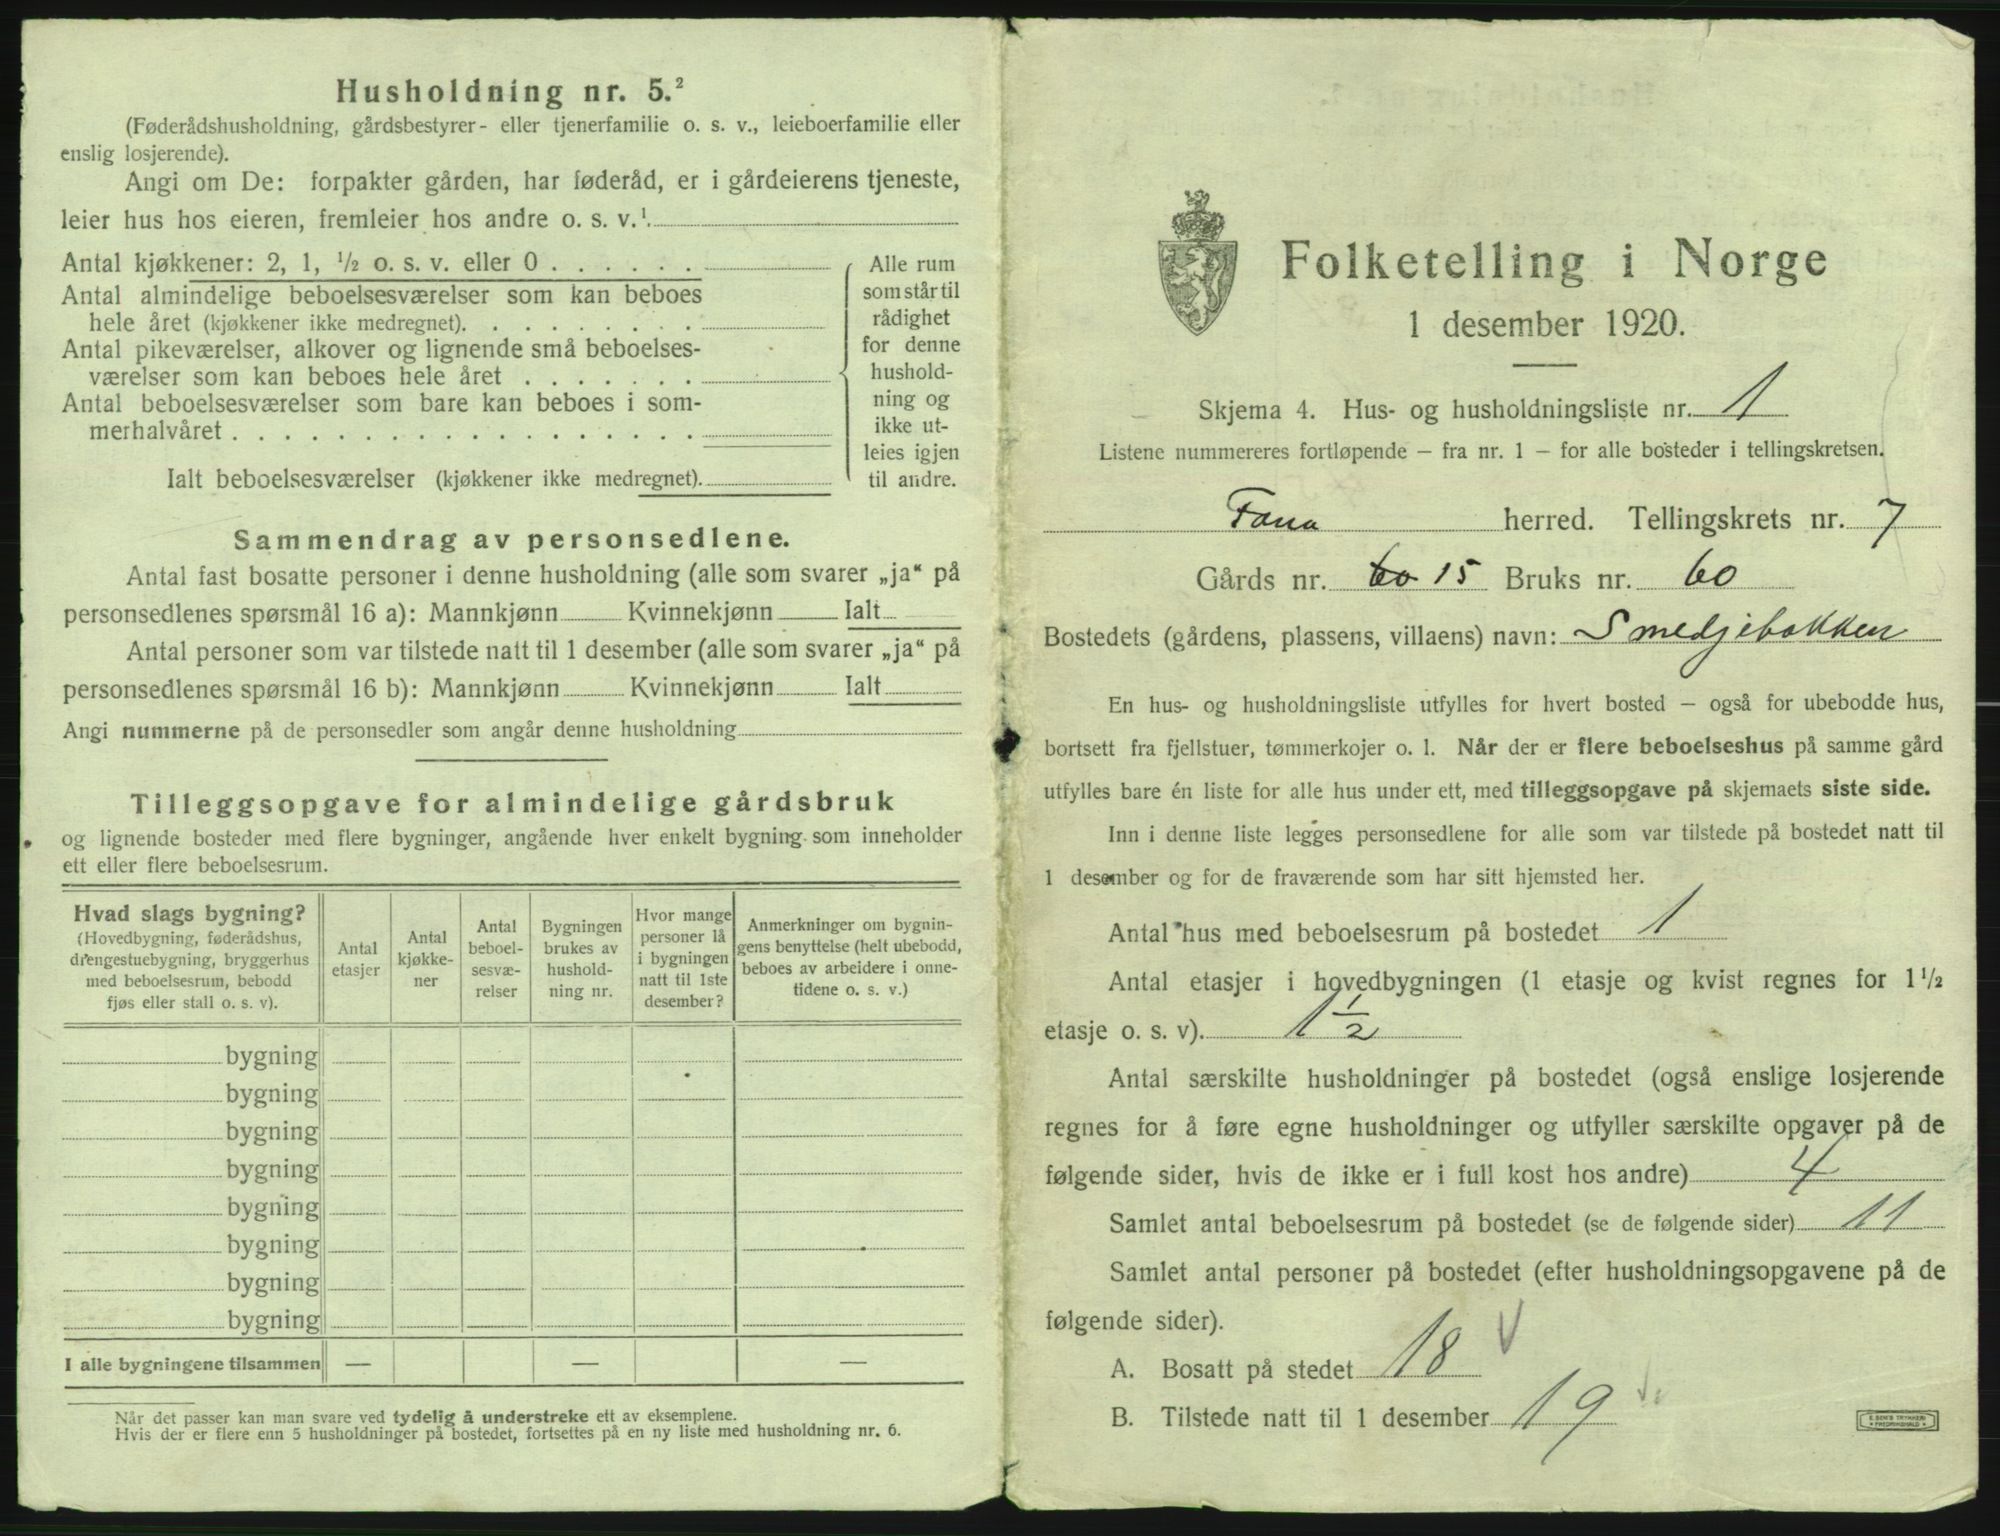 Husholdning nr. 5.²
(Føderådshusholdning, gårdsbestyrer- eller tjenerfamilie o. s. v., leieboerfamilie eller
enslig losjerende).
Angi om De: forpakter gården, har føderåd, er i gårdeierens tjeneste,
leier hus hos eieren, fremleier hos andre o. s. v.¹
Antal kjøkkener: 2, 1, ½ o. s. v. eller 0
Antal almindelige beboelsesværelser som kan beboes
hele året (kjøkkener ikke medregnet).
Antal pikeværelser, alkover og lignende små beboelses-
værelser som kan beboes hele året
Antal beboelsesværelser som bare kan beboes i som-
merhalvåret
Ialt beboelsesværelser (kjøkkener ikke medregnet).
Alle rum
som står til
rådighet
for denne
hushold-
ning og
ikke ut-
leies igjen
til andre.
Sammendrag av personsedlene.
Antal fast bosatte personer i denne husholdning (alle som svarer „ja“ på
personsedlenes spørsmål 16 a): Mannkjønn Kvinnekjønn Ialt
Antal personer som var tilstede natt til 1 desember (alle som svarer „ja“ på
personsedlenes spørsmål 16 b): Mannkjønn Kvinnekjønn Ialt
Angi nummerne på de personsedler som angår denne husholdning
Tilleggsopgave for almindelige gårdsbruk
og lignende bosteder med flere bygninger, angående hver enkelt bygning som inneholder
ett eller flere beboelsesrum.
Hvad slags bygning?
(Hovedbygning, føderådshus,
drengestuebygning, bryggerhus
med beboelsesrum, bebodd
fjøs eller stall o. s. v).
Antal
etasjer
Antal
kjøkke-
ner
Antal
beboel-
sesvæ-
relser
Bygningen
brukes av
hushold-
ning nr.
Hvor mange
personer lå
i bygningen
natt til 1ste
desember?
Anmerkninger om bygnin-
gens benyttelse (helt ubebodd,
beboes av arbeidere i onne-
tidene o. s. v.)
bygning
bygning
bygning
bygning
bygning
bygning
bygning
bygning
I alle bygningene tilsammen — — —
Når det passer kan man svare ved tydelig å understreke ett av eksemplene.
Hvis der er flere enn 5 husholdninger på bostedet, fortsettes på en ny liste med husholdning nr. 6.
Folketelling i Norge
1 desember 1920.
Skjema 4. Hus- og husholdningsliste nr. 1
Listene nummereres fortløpende — fra nr. 1 — for alle bosteder i tellingskretsen.
Fana herred. Tellingskrets nr. 7
Gårds nr. 60 15 Bruks nr. 60
Bostedets (gårdens, plassens, villaens) navn: Smedjebakken
En hus- og husholdningsliste utfylles for hvert bosted — også for ubebodde hus,
bortsett fra fjellstuer, tømmerkojer o. l. Når der er flere beboelseshus på samme gård
utfylles bare én liste for alle hus under ett, med tilleggsopgave på skjemaets siste side.
Inn i denne liste legges personsedlene for alle som var tilstede på bostedet natt til
1 desember og for de fraværende som har sitt hjemsted her.
Antal hus med beboelsesrum på bostedet 1
Antal etasjer i hovedbygningen (1 etasje og kvist regnes for 1½
etasje o. s. v). 1½
Antal særskilte husholdninger på bostedet (også enslige losjerende
regnes for å føre egne husholdninger og utfyller særskilte opgaver på de
følgende sider, hvis de ikke er i full kost hos andre) 4
Samlet antal beboelsesrum på bostedet (se de følgende sider) 11
Samlet antal personer på bostedet (efter husholdningsopgavene på de
følgende sider).
A. Bosatt på stedet 18
B. Tilstede natt til 1 desember 19